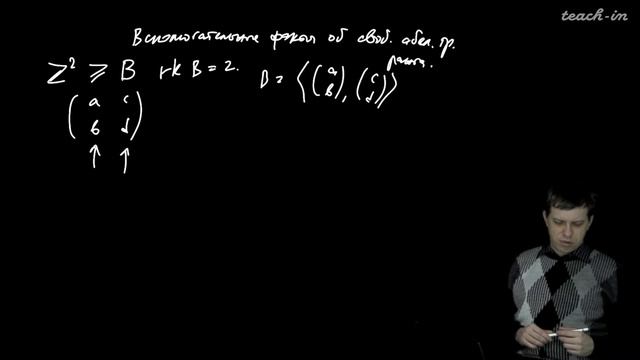 teach-in
Вспомогательные факты об своб. абел. гр.
ранга.
ℤ² ⩾ B rk B = 2. B = ⟨(a b), (c d)⟩
(a c
b d)
↑ ↑